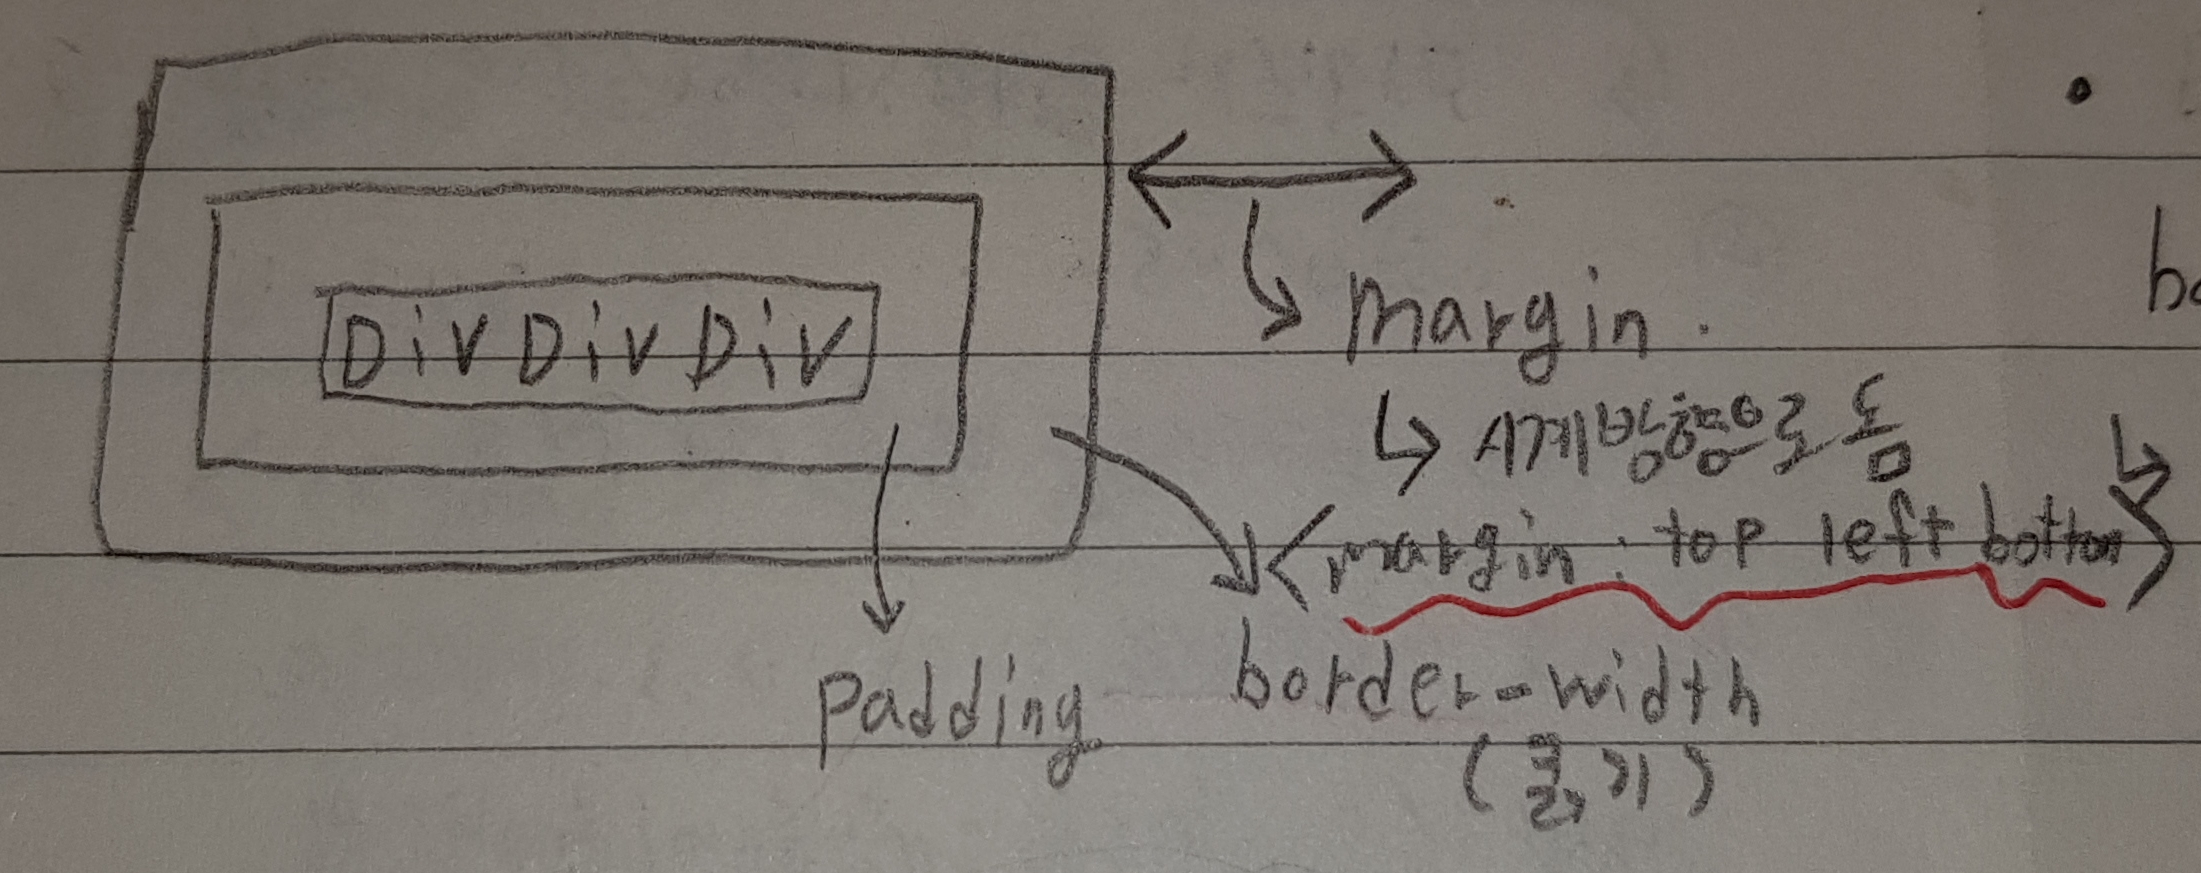 Div Div Div
margin.
↳ 시계방향으로 돔
<margin: top left bottom>
padding
border-width
(굵기)